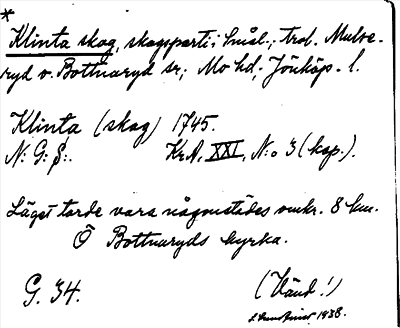 *
Klinta skog, skogsparti i Smål.; trol. Mulse-
ryd o. Bottnaryd sr; Mo hd; Jönköp. l.
Klinta (skog) 1745.
N: G: g:. KrA, XXI, N:o 3 (kop.).
Läget torde vara någonstädes omkr. 8 km.
Ö Bottnaryds kyrka.
G. 34. (Vänd!)
1938.